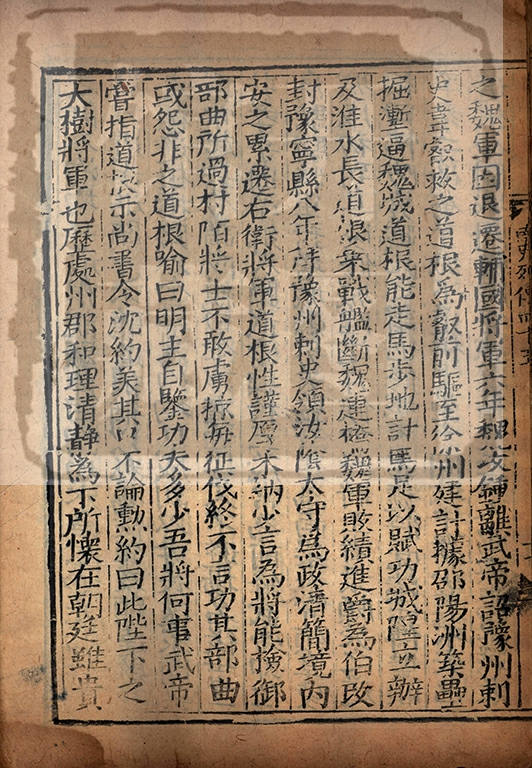 之魏軍因退遷輔國將軍六年魏攻鍾離武帝詔豫州刺
史韋叡救之道根為叡前驅至徐州建計據邵陽洲築壘
掘塹逼魏城道根能走馬步地計馬足以賦功城隍立辦
及淮水長道根乘戰艦斷魏連橋魏軍敗績進爵為伯改
封豫寧縣八年拜豫州刺史領汝陰太守為政清簡境內
安之累遷右衛將軍道根性謹厚木納少言為將能撿御
部曲所過村陌將士不敢虜掠每征伐終不言功其部曲
或怨非之道根喻曰明主自鑒功夫多少吾將何事武帝
嘗指道根示尚書令沈約美其口不論勲約曰此陛下之
大樹將軍也歷處州郡和理清静為下所懷在朝廷雖貴
南史列傳四十五